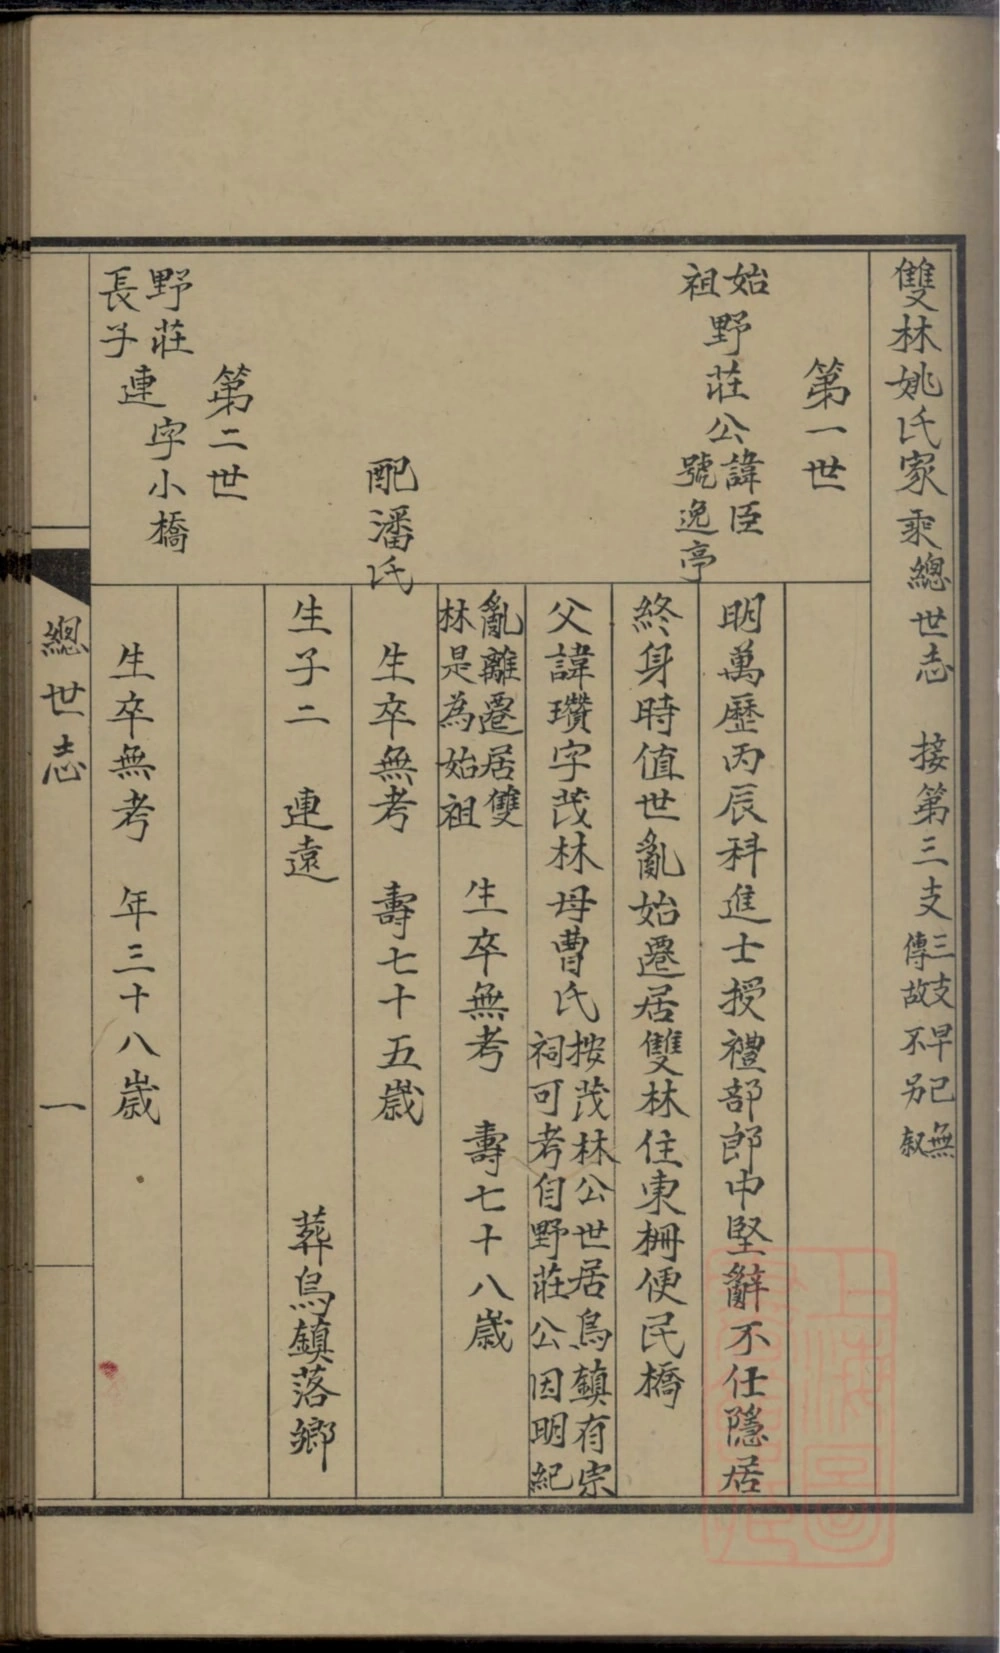 雙林姚氏家乘總世志　接第三支三支早已無傳故不另叙
第一世
始祖野莊公諱臣號逸亭
明萬歷丙辰科進士授禮部郎中堅辭不仕隱居
終身時值世亂始遷居雙林住東柵便民橋
父諱瓚字茂林母曹氏按茂林公世居烏鎮有宗祠可考自野莊公因明紀
亂離遷居雙林是為始祖　生卒無考　壽七十八歲
配潘氏
生卒無考　壽七十五歲
生子二　連遠　葬烏鎮落鄉
第二世
野莊長子連字小橋
生卒無考　年三十八歲
總世志　一
上海圖